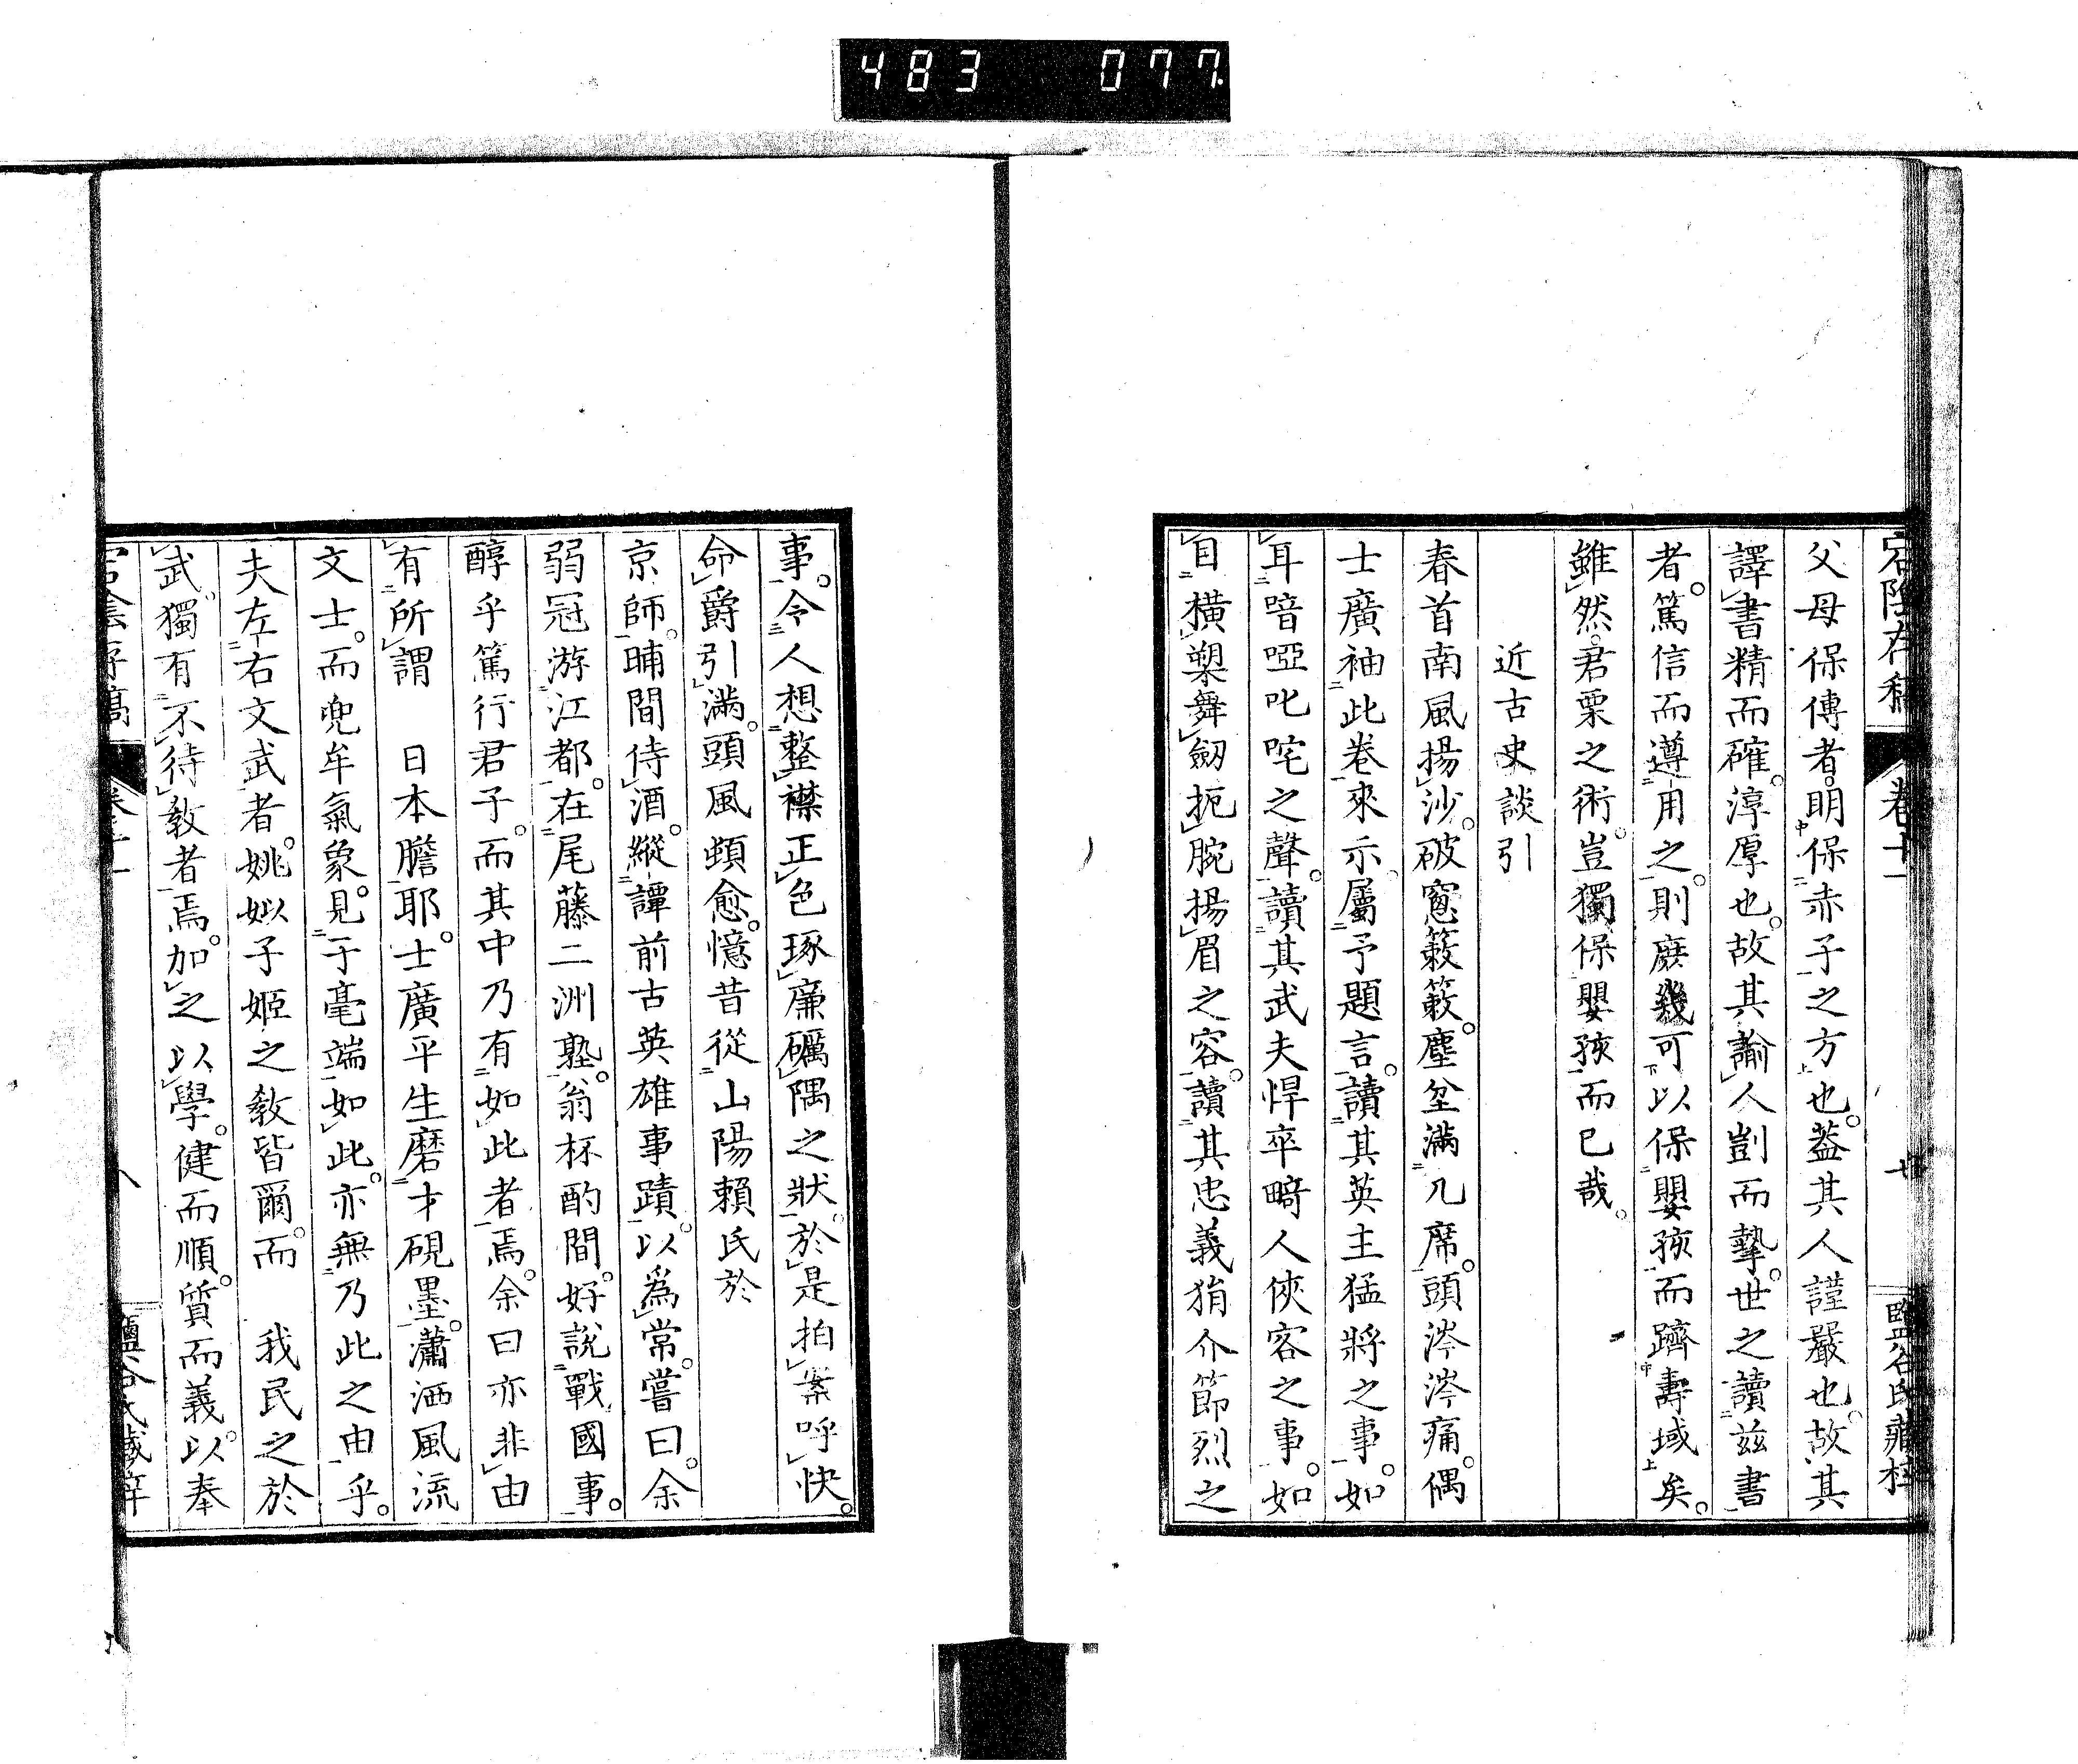 483 077
宕陰存稿 卷十一 廿 鹽谷氏藏梓
父母保傅者。明保赤子之方也。蓋其人謹嚴也。故其
譯書精而確。淳厚也。故其諭人剴而摯。世之讀茲書
者。篤信而遵用之。則庶幾可以保嬰孩而躋壽域矣。
雖然。君栗之術。豈獨保嬰孩而已哉。
近古史談引
春首南風揚沙。破窻簌簌。塵坌滿几席。頭涔涔痛。偶
士廣袖此卷來示。屬予題言。讀其英主猛將之事。如
耳喑啞叱咤之聲。讀其武夫悍卒畸人俠客之事。如
目橫槊舞劒扼腕揚眉之容。讀其忠義狷介節烈之
事。令人想整襟正色琢廉礪隅之狀。於是拍案呼快。
命爵引滿。頭風頓愈。憶昔從山陽賴氏於
京師。晡間侍酒。縱譚前古英雄事蹟。以爲常。嘗曰。余
弱冠游江都。在尾藤二洲塾。翁杯酌間。好說戰國事。
醇乎篤行君子。而其中乃有如此者焉。余曰亦非由
有所謂 日本膽耶。士廣平生磨才硯墨。瀟洒風流
文士。而兜牟氣象。見于毫端如此。亦無乃此之由乎。
夫左右文武者。姚姒子姬之敎皆爾。而 我民之於
武。獨有不待敎者焉。加之以學。健而順。質而義。以奉